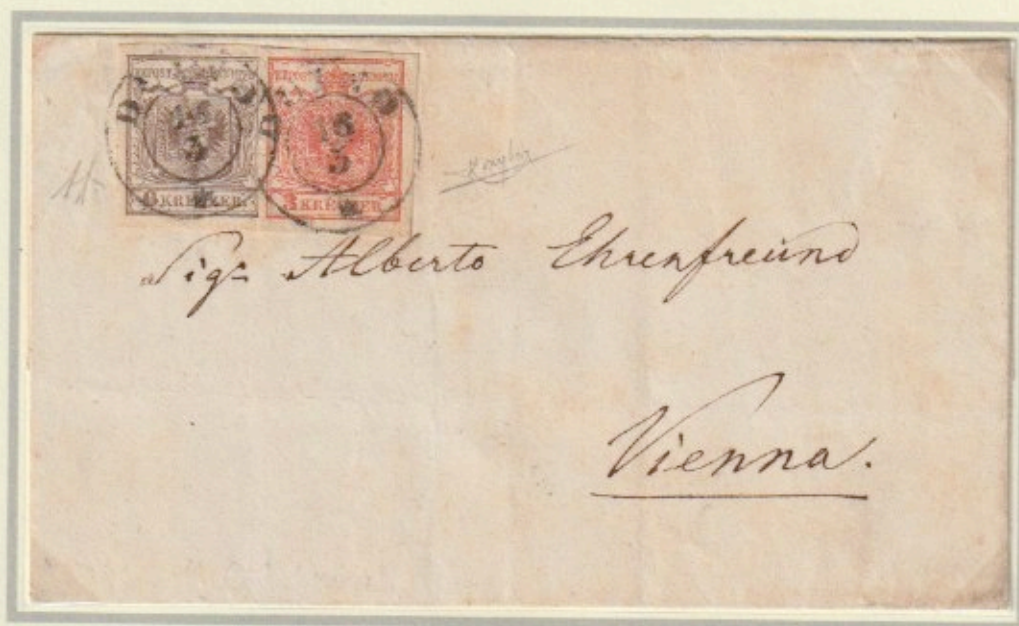 6 KREUZER
3 KREUZER
16
3
16
3
Sigr Alberto Ehrenfreund
Vienna.